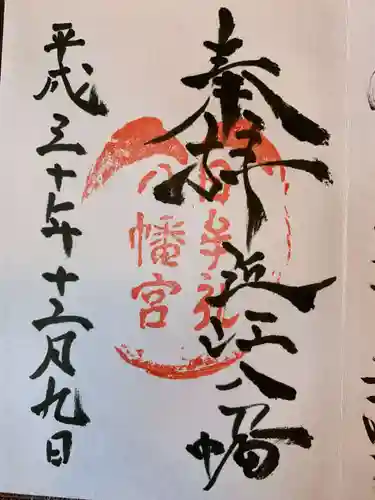 奉拝
近江八幡
日牟礼
八幡宮
平成三十年十二月九日